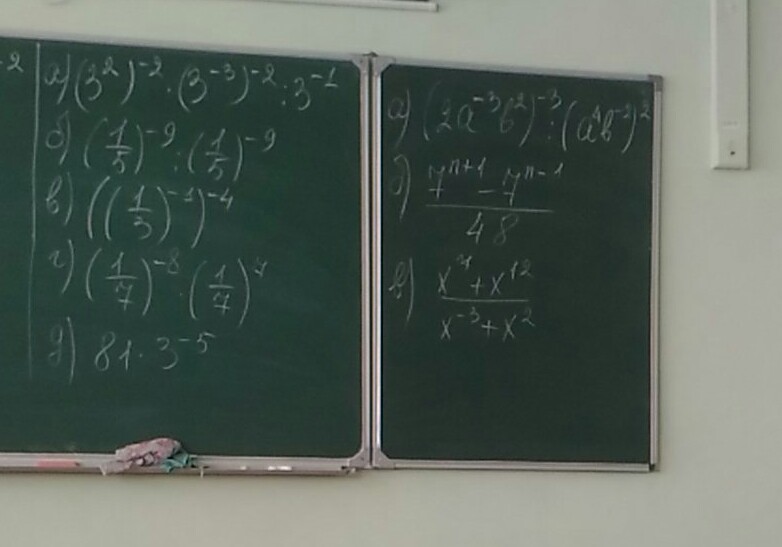 -2
а) (3²)⁻² · (3⁻³)⁻² : 3⁻¹
б) (1/5)⁻⁹ : (1/5)⁻⁹
в) ((1/3)⁻¹)⁻⁴
г) (1/7)⁻⁸ · (1/7)⁷
д) 81 · 3⁻⁵
а) (2a⁻³b²)⁻³ : (a⁴b⁻²)²
б) (7ⁿ⁺¹ - 7ⁿ⁻¹)/48
в) (x⁷ + x¹²)/(x⁻³ + x²)